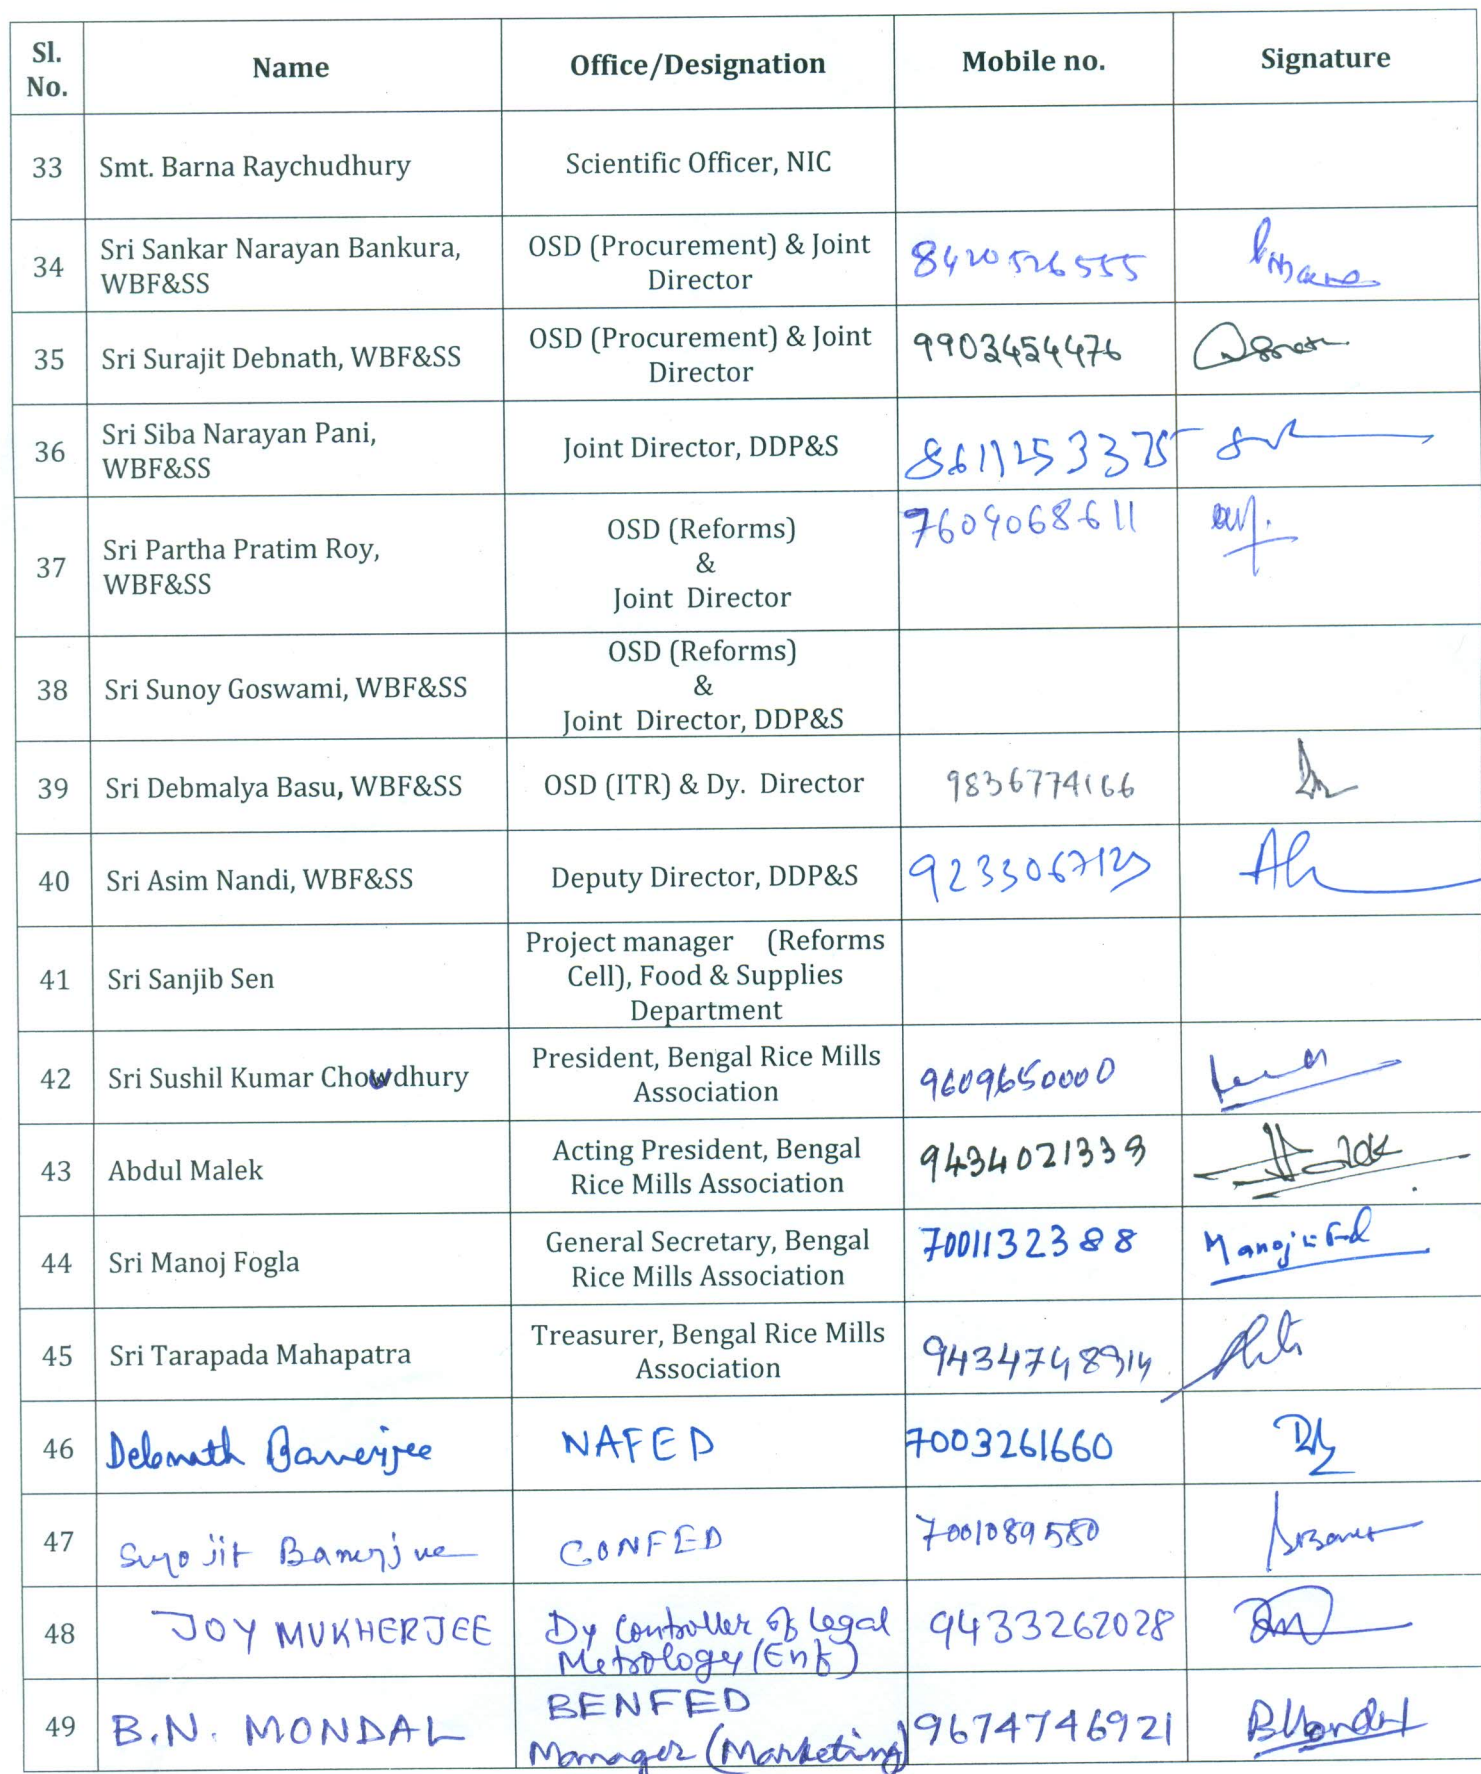 Sl. No.	Name	Office/Designation	Mobile no.	Signature
33	Smt. Barna Raychudhury	Scientific Officer, NIC
34	Sri Sankar Narayan Bankura, WBF&SS	OSD (Procurement) & Joint Director	8420526555
35	Sri Surajit Debnath, WBF&SS	OSD (Procurement) & Joint Director	9903454476
36	Sri Siba Narayan Pani, WBF&SS	Joint Director, DDP&S
37	Sri Partha Pratim Roy, WBF&SS	OSD (Reforms) & Joint Director	7609068611
38	Sri Sunoy Goswami, WBF&SS	OSD (Reforms) & Joint Director, DDP&S
39	Sri Debmalya Basu, WBF&SS	OSD (ITR) & Dy. Director	9836774166
40	Sri Asim Nandi, WBF&SS	Deputy Director, DDP&S
41	Sri Sanjib Sen	Project manager (Reforms Cell), Food & Supplies Department
42	Sri Sushil Kumar Chowdhury	President, Bengal Rice Mills Association	9609650000
43	Abdul Malek	Acting President, Bengal Rice Mills Association	9434021339
44	Sri Manoj Fogla	General Secretary, Bengal Rice Mills Association	7001132388	Manoj
45	Sri Tarapada Mahapatra	Treasurer, Bengal Rice Mills Association	9434748914
46	Debnath Banerjee	NAFED	7003261660
47	Banerjee	CONFED	7001089580
48	JOY MUKHERJEE	Dy Controller of Legal Metrology (Enf)	9433262028
49	B.N. MONDAL	BENFED Manager (Marketing)	9674746921	BMondal